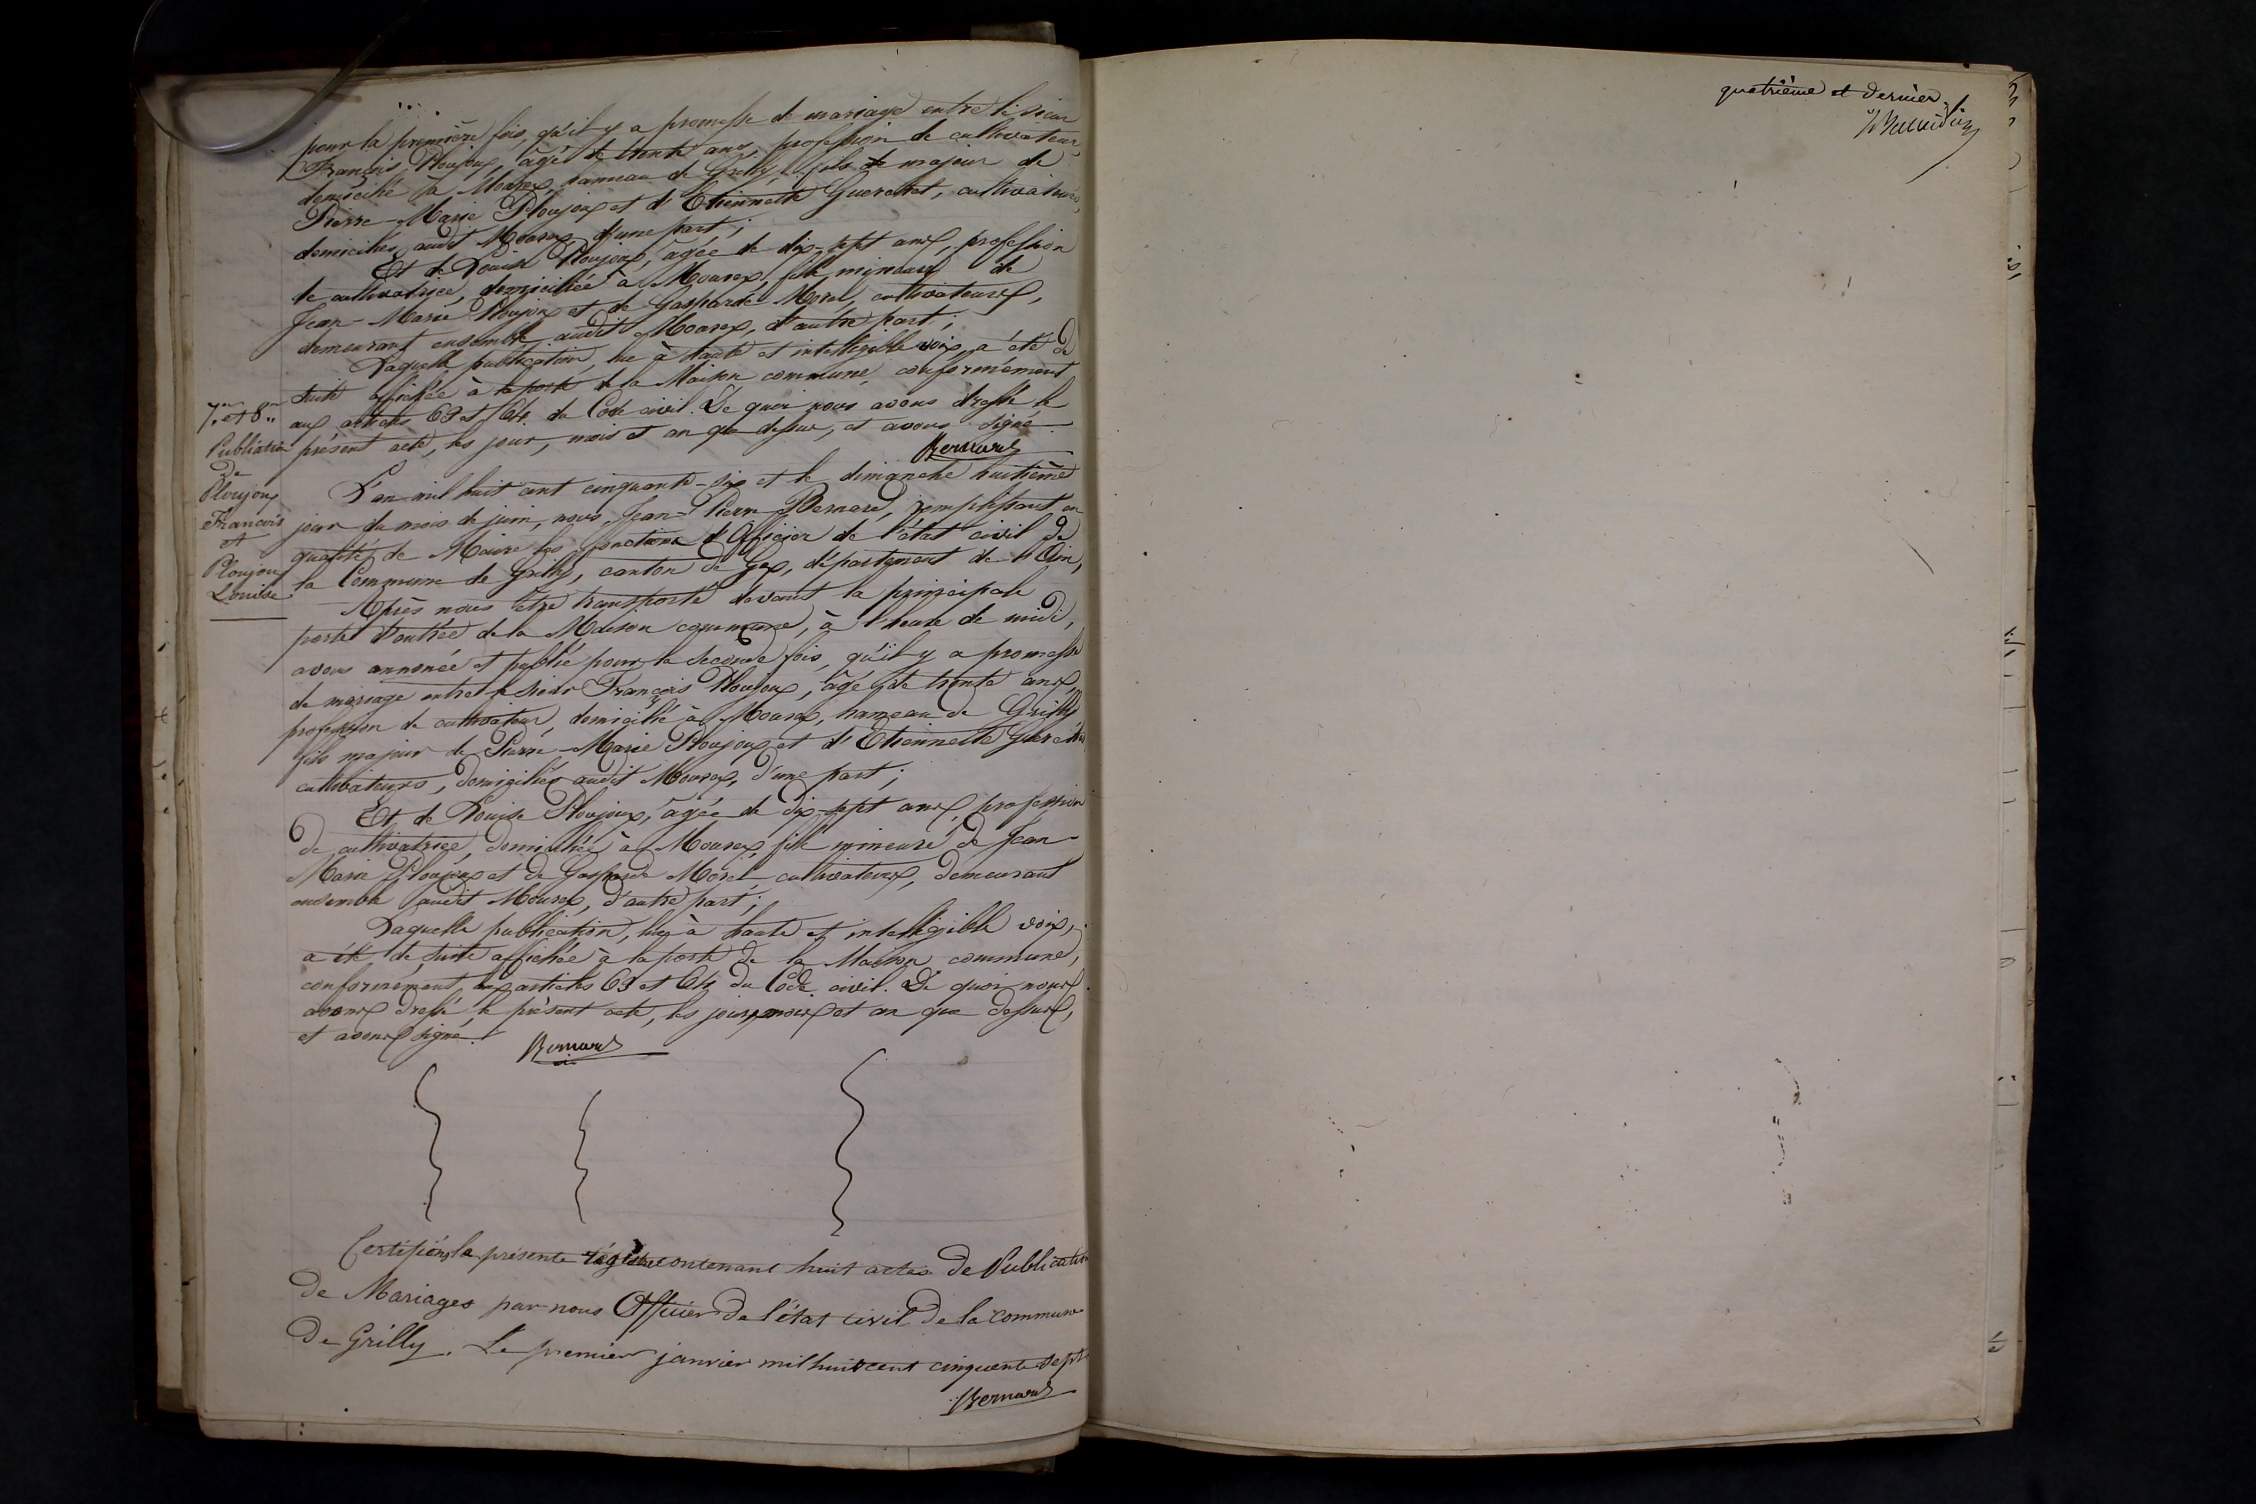 pour la première fois, qu'il y a promesse de mariage entre le sieur
François Ploujoux, âgé de trente ans, profession de cultivateur,
domicilié à Mourex, hameau de Grilly, fils majeur de
Pierre-Marie Ploujoux et d'Etiennette Guerchet, cultivateurs,
domiciliés audit Mourex, d'une part;
Et de Louise Ploujoux, âgée de dix-sept ans, profession
de cultivatrice, domiciliée à Mourex, fille mineure de
Jean-Marie Ploujoux et de Gasparde Morel, cultivateurs,
demeurant ensemble audit Mourex, d'autre part;
Laquelle publication, lue à haute et intelligible voix, a été de
suite affichée à la porte de la Maison commune, conformément
aux articles 63 et 64 du Code civil. De quoi nous avons dressé le
présent acte, les jour, mois et an que dessus, et avons signé.
Bernard
7.me et 8.me
Publication
de
Ploujoux
François
et
Ploujoux
Louise
L'an mil huit cent cinquante-six et le dimanche huitième
jour du mois de juin, nous, Jean-Pierre Bernard, remplissant en
qualité de Maire les fonctions d'Officier de l'état civil de
la Commune de Grilly, canton de Gex, département de l'Ain,
Après nous être transporté devant la principale
porte d'entrée de la Maison commune, à l'heure de midi,
avons annoncé et publié pour la seconde fois, qu'il y a promesse
de mariage entre le sieur François Ploujoux, âgé de trente ans,
profession de cultivateur, domicilié à Mourex, hameau de Grilly
fils majeur de Pierre-Marie Ploujoux et d'Etiennette Guerchet
cultivateurs, domiciliés audit Mourex, d'une part;
Et de Louise Ploujoux, âgée de dix-sept ans, profession
de cultivatrice, domiciliée à Mourex, fille mineure de Jean-
Marie Ploujoux et de Gasparde Morel cultivateurs, demeurant
ensemble audit Mourex, d'autre part;
Laquelle publication, lue à haute et intelligible voix,
a été de suite affichée à la porte de la Maison commune,
conformément aux articles 63 et 64 du Code civil. De quoi nous
avons dressé le présent acte, les jour, mois et an que dessus,
et avons signé.
Bernard
Certifions le présente régistre contenant huit actes de Publication
de Mariages par nous Officier de l'état civil de la commune
de Grilly. Le premier janvier mil huit cent cinquante sept
Bernard
quatrième et dernier f.